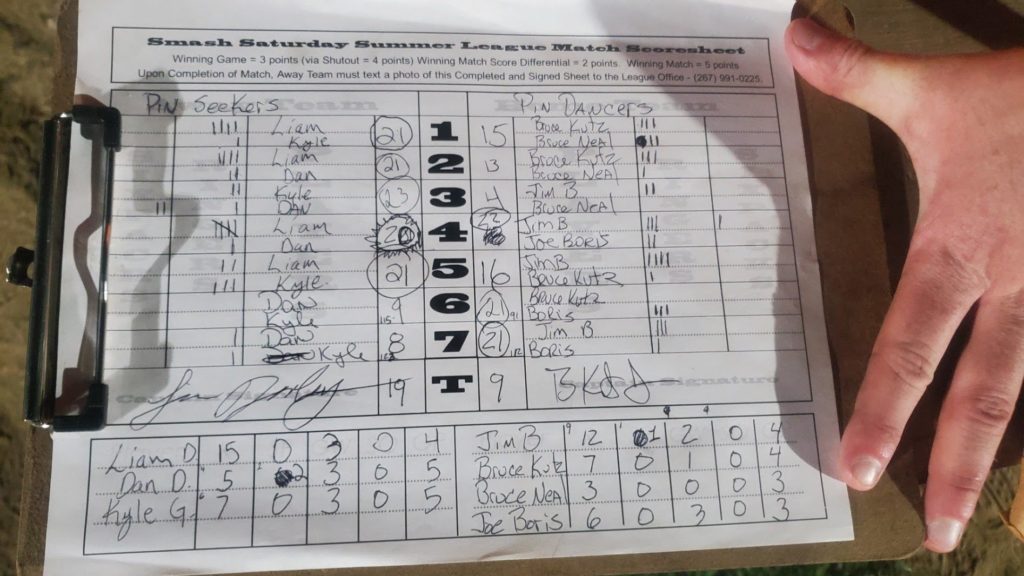 Smash Saturday Summer League Match Scoresheet
Winning Game = 3 points (via Shutout = 4 points) Winning Match Score Differential = 2 points. Winning Match = 5 points
Upon Completion of Match, Away Team must text a photo of this Completed and Signed Sheet to the League Office - (267) 991-0225.
Pin Seekers Pin Dancers
Liam 21 1 15 Bruce Kutz
Kyle Bruce Neal
Liam 21 2 13 Bruce Kutz
Dan Bruce Neal
Kyle 23 3 4 Jim B
Dan Bruce Neal
Liam 20 4 Jim B
Dan Joe Boris
Liam 21 5 16 Jim B
Kyle Bruce Kutz
Dan 9 6 21 Bruce Kutz
Kyle 115 Boris
Dan 8 7 21 Jim B
Kyle Boris
19 T 9
Liam D. 15 0 3 0 4 Jim B 12 1 2 0 4
Dan D. 5 2 3 0 5 Bruce Kutz 7 0 1 0 4
Kyle G. 7 0 3 0 5 Bruce Neal 3 0 0 0 3
Joe Boris 6 0 3 0 3